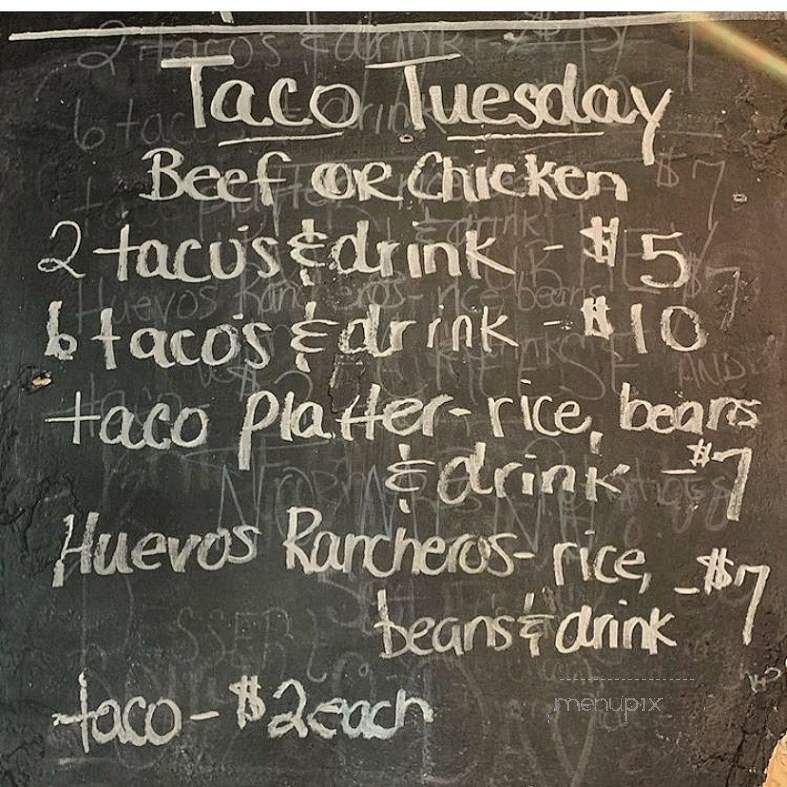 Taco Tuesday
Beef OR Chicken
2 taco's & drink - $5
6 taco's & drink - $10
taco platter - rice, beans
& drink - $7
Huevos Rancheros - rice, - $7
beans & drink
taco - $2 each
menupix